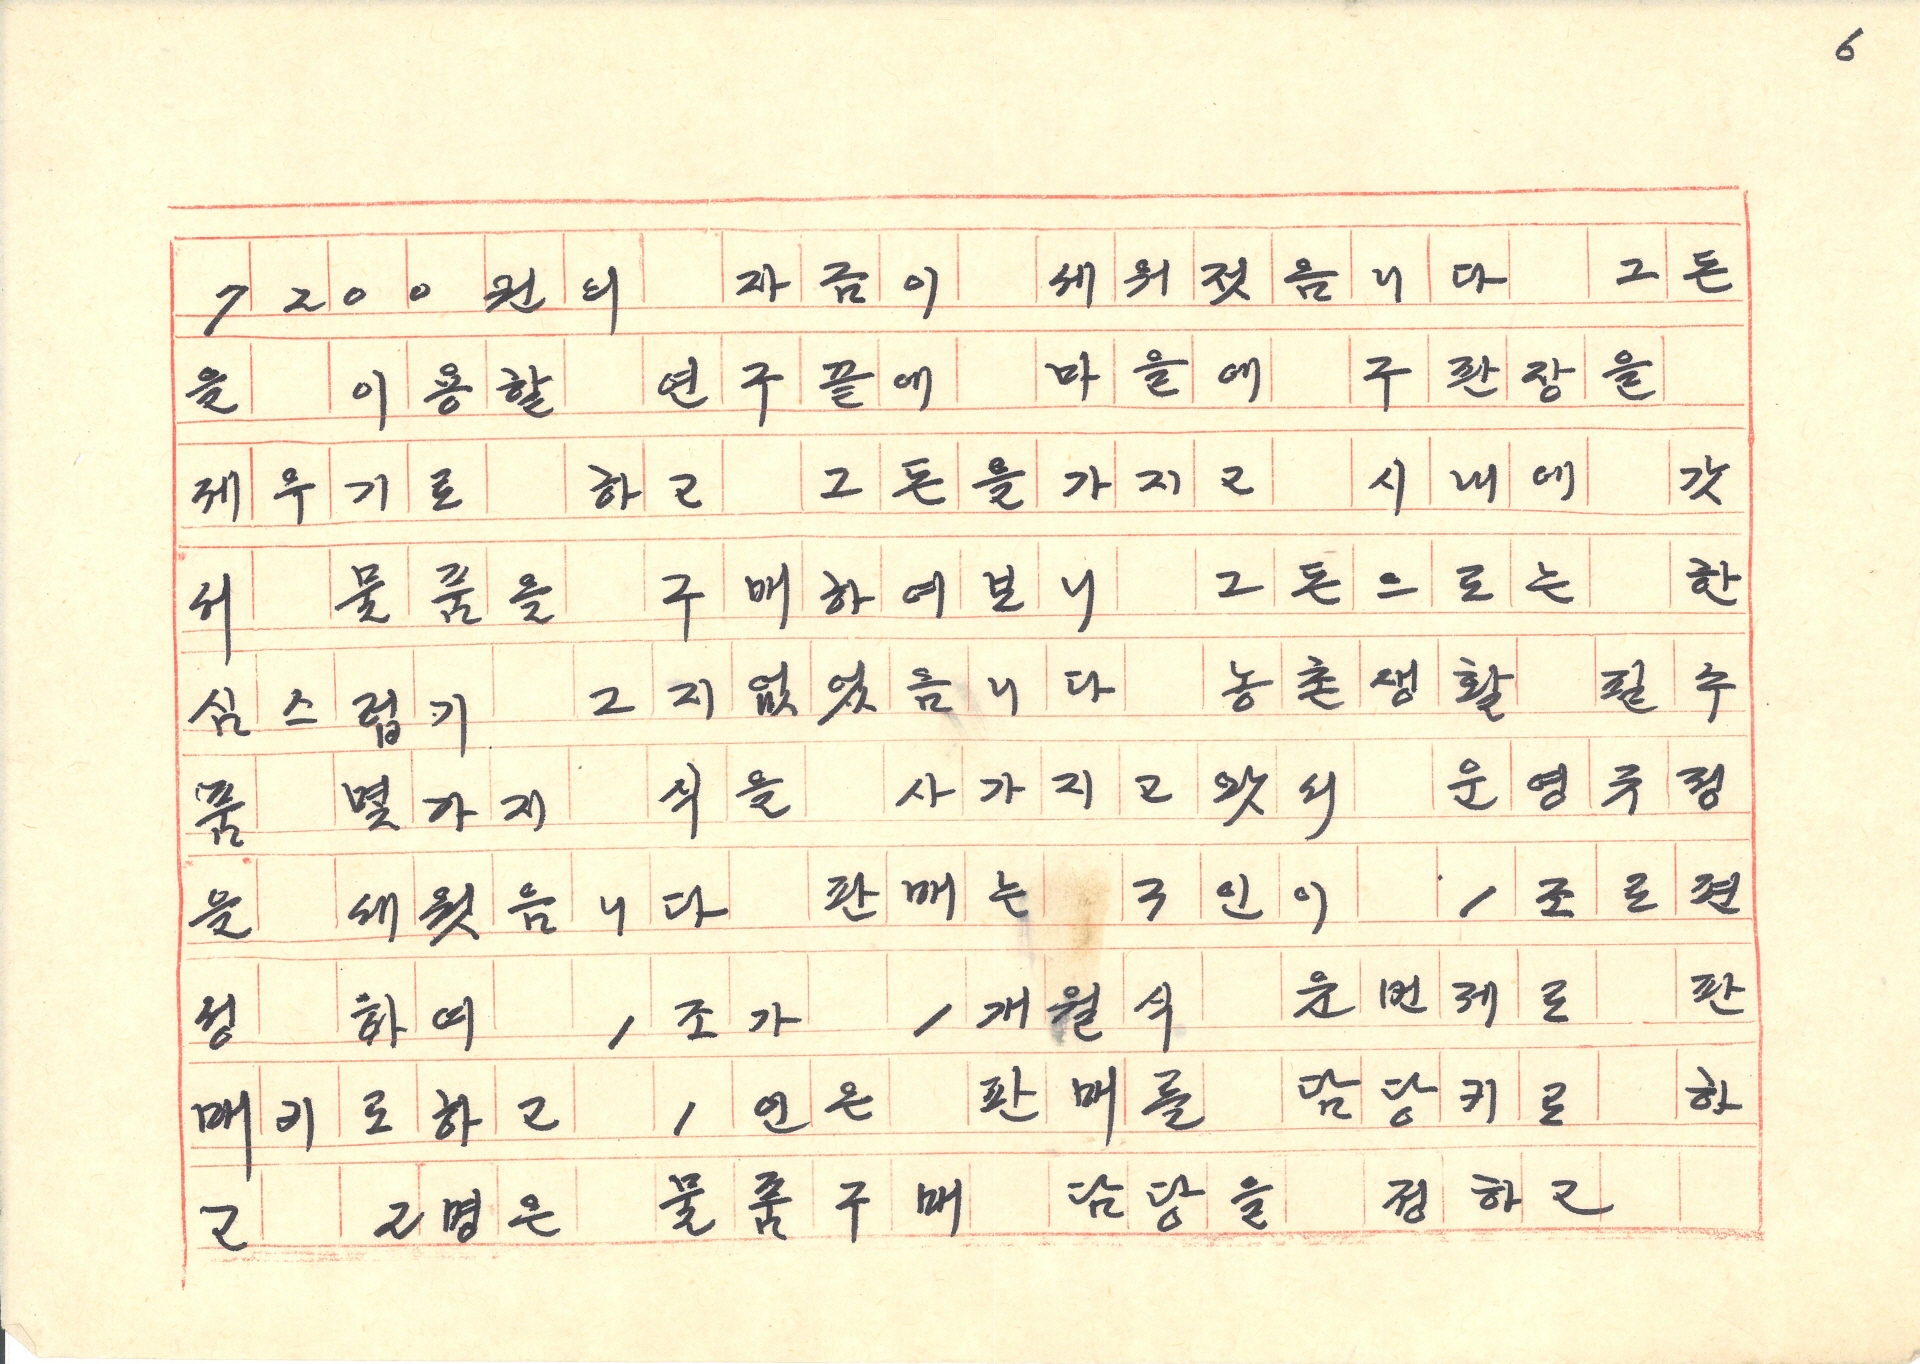 6
7200원의 자금이 세워젓음니다 그돈
을 이용할 연구끝에 마을에 구판장을
제우기로 하고 그돈을가지고 시내에 갓
서 물품을 구매하여보니 그돈으로는 한
심스럽기 그지없었음니다 농촌생활 필수
품 몇가지 식을 사가지고왓서 운영주정
을 세웠음니다 판매는 3인이 1조로편
성 하여 1조가 1개월식 윤번제로 판
매키로하고 1인은 판매를 담당키로 하
고 2명은 물품구매 담당을 정하고